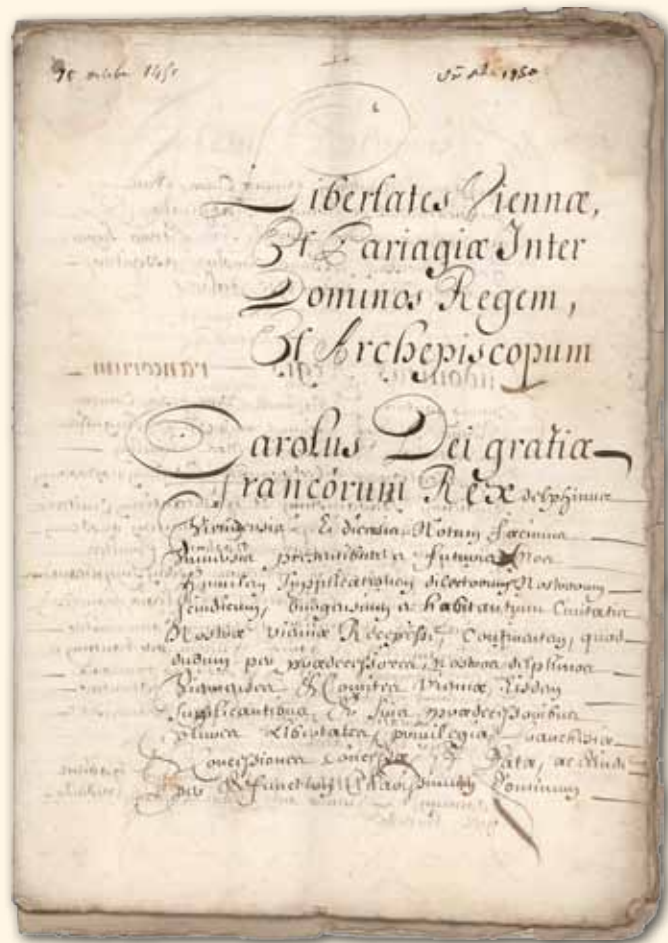 octobre 1451
1450
Libertates Viennæ,
Et Pariagiæ Inter
Dominos Regem,
Et Archepiscopum
Carolus Dei gratiæ
francorum Rex delphinus
Viennensis Notum facimus
presentibus et futuris Nos
humilem supplicationem dilectorum Nostrorum
sindicorum, burgensium et habitantium Civitatis
Nostræ Viennæ Recepisse, Continentem, quod
dudum per prædecessores Nostros delphinos
Viennenses Et Comites Viennæ Eisdem
supplicantibus, Et suis prædecessoribus
Libertates, privilegia, franchisiæ
Concessiones Concessæ Et Datæ, ac
per Defunctum Charissimum Dominum